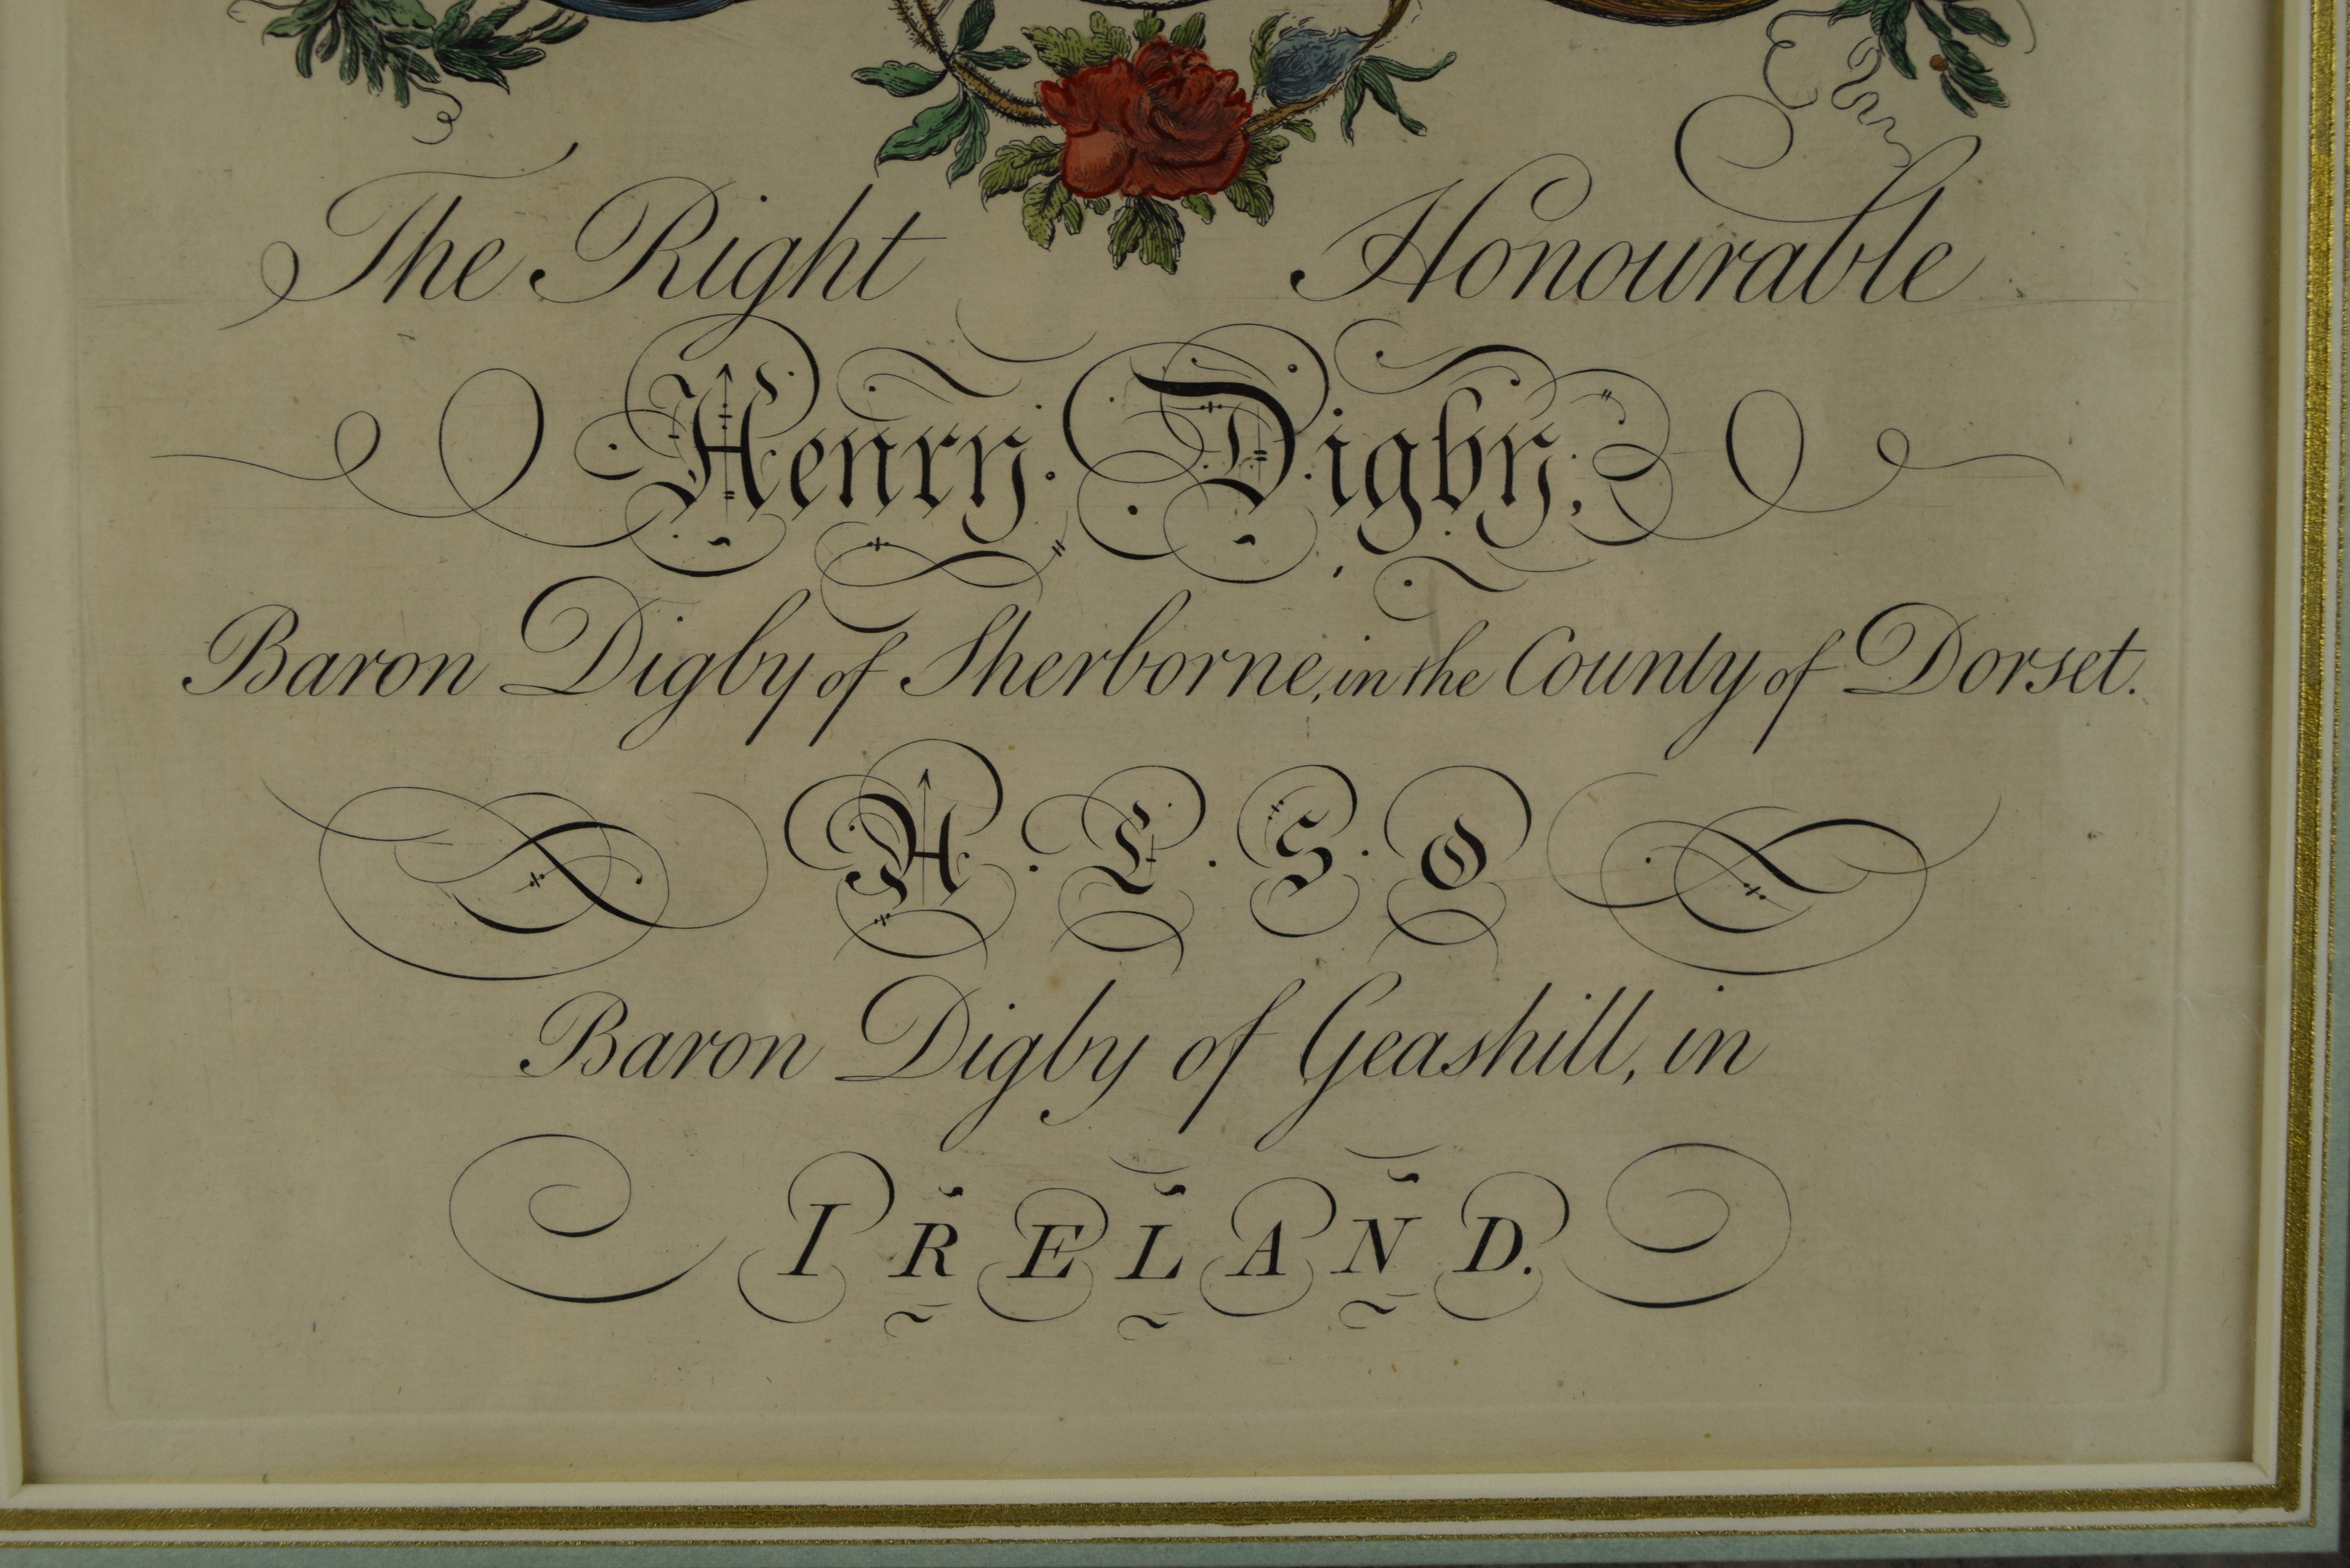 The Right Honourable
Henry Digby,
Baron Digby of Sherborne, in the County of Dorset.
A. L. S. O
Baron Digby of Geashill, in
IRELAND.